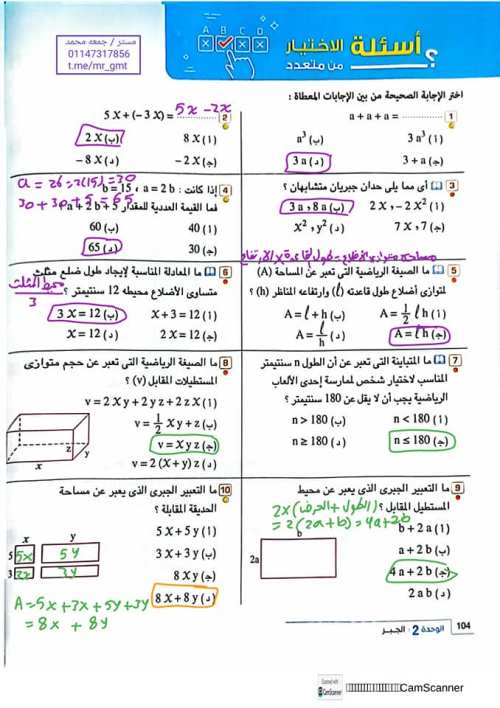 مستر / جمعه محمد
01147317856
t.me/mr_gmt
A B C D
أسئلة الاختيار
من متعدد
؟
اختر الإجابة الصحيحة من بين الإجابات المعطاة :
1 a + a + a = ..........
(أ) 3 a³ (ب) a³
(ج) 3 + a (د) 3 a
2 5 X + (– 3 X) = .......... 5x - 3x
(أ) 8 X (ب) 2 X
(ج) – 2 X (د) – 8 X
3 أى مما يلى حدان جبريان متشابهان ؟
(أ) 2 X , – 2 X² (ب) 3 a , 8 a
(ج) 7 X , 7 (د) x² , y²
a = 2b = 2(15) = 30
4 إذا كانت : a = 2 b ، b = 15
30 + 30 + 5 = 65
فما القيمة العددية للمقدار a + 2 b + 5
(أ) 40 (ب) 60
(ج) 30 (د) 65
مساحة متوازى الأضلاع = طول القاعدة × الارتفاع
5 ما الصيغة الرياضية التى تعبر عن المساحة (A)
لمتوازى أضلاع طول قاعدته (ℓ) وارتفاعه المناظر (h) ؟
(أ) A = 1/2 ℓ h (ب) A = ℓ + h
(ج) A = ℓ h (د) A = ℓ/h
6 ما المعادلة المناسبة لإيجاد طول ضلع مثلث
محيط المثلث
3
متساوى الأضلاع محيطه 12 سنتيمتر ؟
(أ) X + 3 = 12 (ب) 3 X = 12
(ج) 2 X = 12 (د) X = 12
7 ما المتباينة التى تعبر عن أن الطول n سنتيمتر
المناسب لاختيار شخص لممارسة إحدى الألعاب
الرياضية يجب أن لا يقل عن 180 سنتيمتر ؟
(أ) n < 180 (ب) n > 180
(ج) n ≤ 180 (د) n ≥ 180
8 ما الصيغة الرياضية التى تعبر عن حجم متوازى
المستطيلات المقابل (v) ؟
(أ) v = 2 X y + 2 y z + 2 z X
(ب) v = 1/2 X y + z
(ج) v = X y z
(د) v = 2 (X + y) z
x
y
z
9 ما التعبير الجبرى الذى يعبر عن محيط
المستطيل المقابل ؟ 2x(الطول + العرض)
= 2(2a+b) = 4a+2b
(أ) b + 2 a
(ب) a + 2 b
(ج) 4 a + 2 b
(د) 2 a b
b
2a
10 ما التعبير الجبرى الذى يعبر عن مساحة
الحديقة المقابلة ؟
(أ) 5 X + 5 y
(ب) 3 X + 3 y
(ج) 8 X y
(د) 8 X + 8 y
x y
5 5x 5y
3 3x 3y
A = 5x + 3x + 5y + 3y
= 8x + 8y
104 الوحدة 2 : الجبر
Scanned with
CamScanner
CamScanner